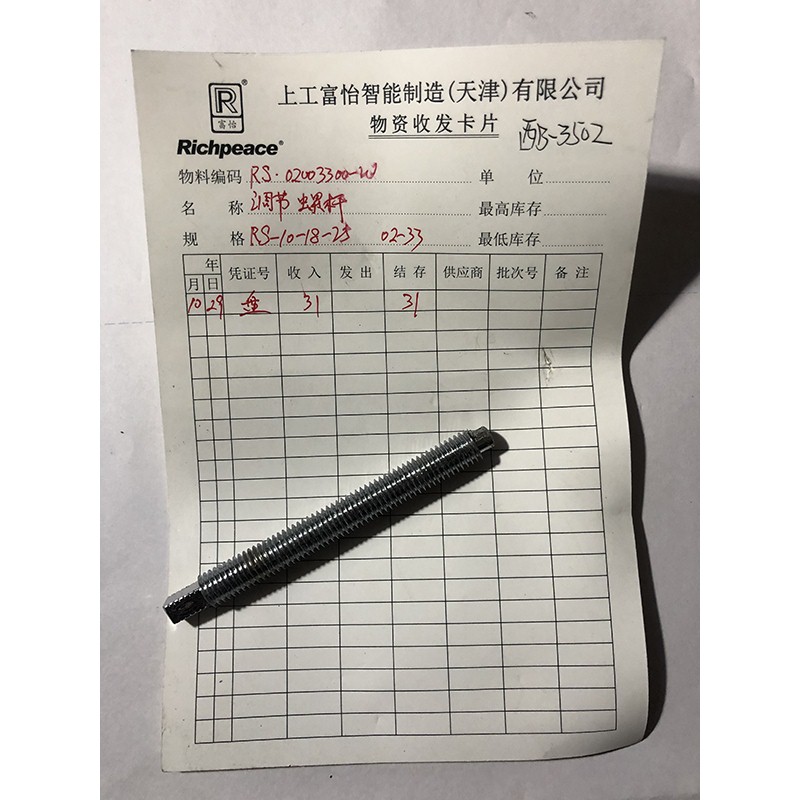 R®
富怡
Richpeace®
上工富怡智能制造(天津)有限公司
物资收发卡片
西B-3502
物料编码 RS·02003300-W 单 位
名 称 调节螺杆 最高库存
规 格 RS-10-18-25 02-33 最低库存
年 凭证号 收入 发出 结存 供应商 批次号 备注
月 日
10 29 盘 31 31